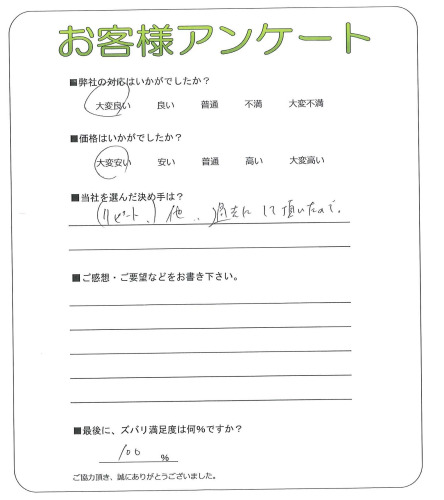 お客様アンケート
■弊社の対応はいかがでしたか?
大変良い 良い 普通 不満 大変不満
■価格はいかがでしたか?
大変安い 安い 普通 高い 大変高い
■当社を選んだ決め手は?
(リピート、) 他、、過去にして頂いたので。
■ご感想・ご要望などをお書き下さい。
■最後に、ズバリ満足度は何%ですか?
100 %
ご協力頂き、誠にありがとうございました。